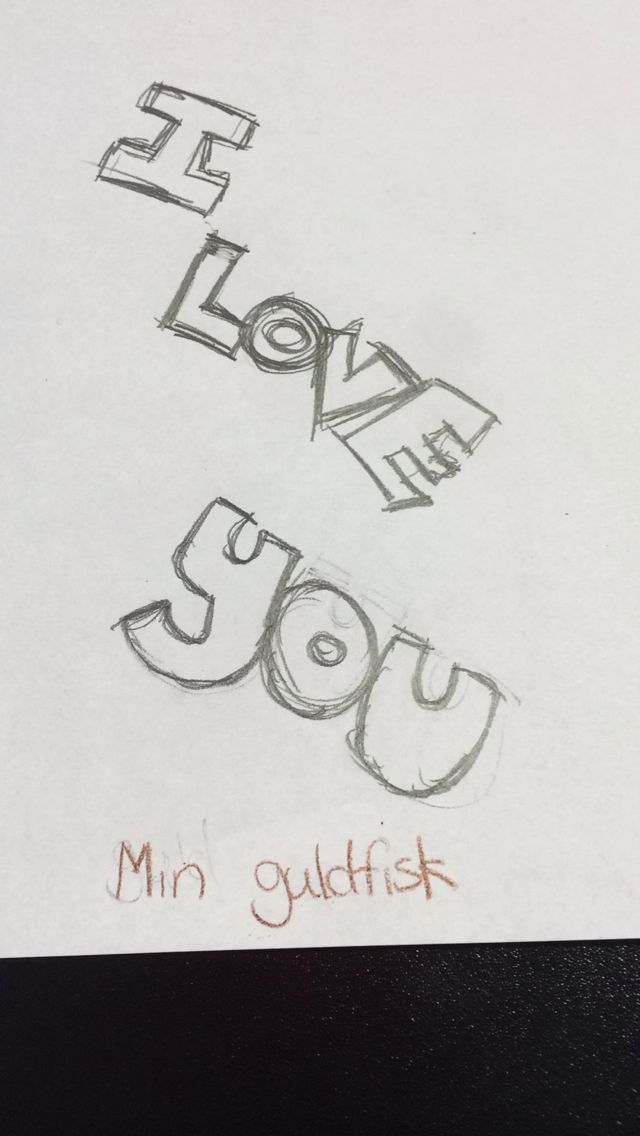 I
LOVE
YOU
Min guldfisk